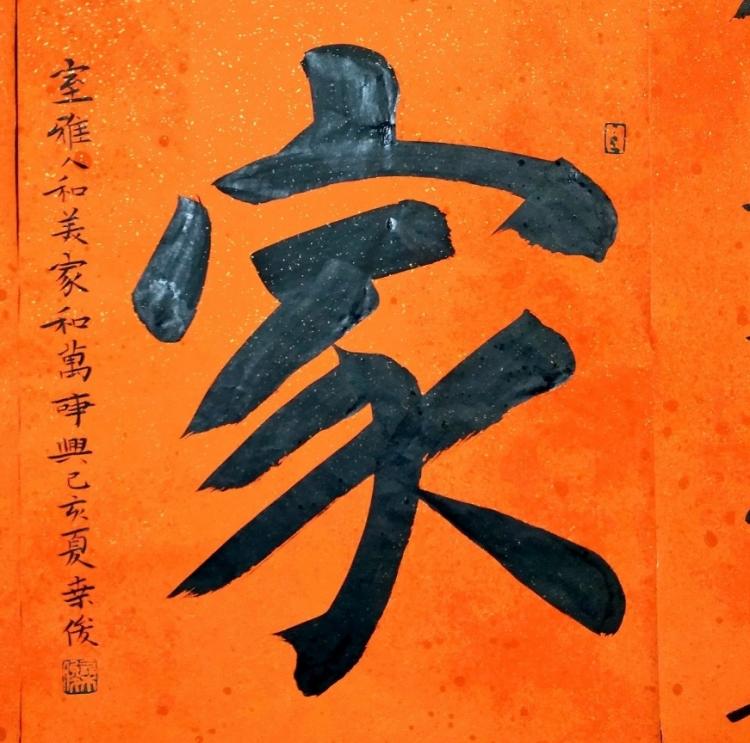 家
室雅人和美家和萬事興己亥夏桒俊